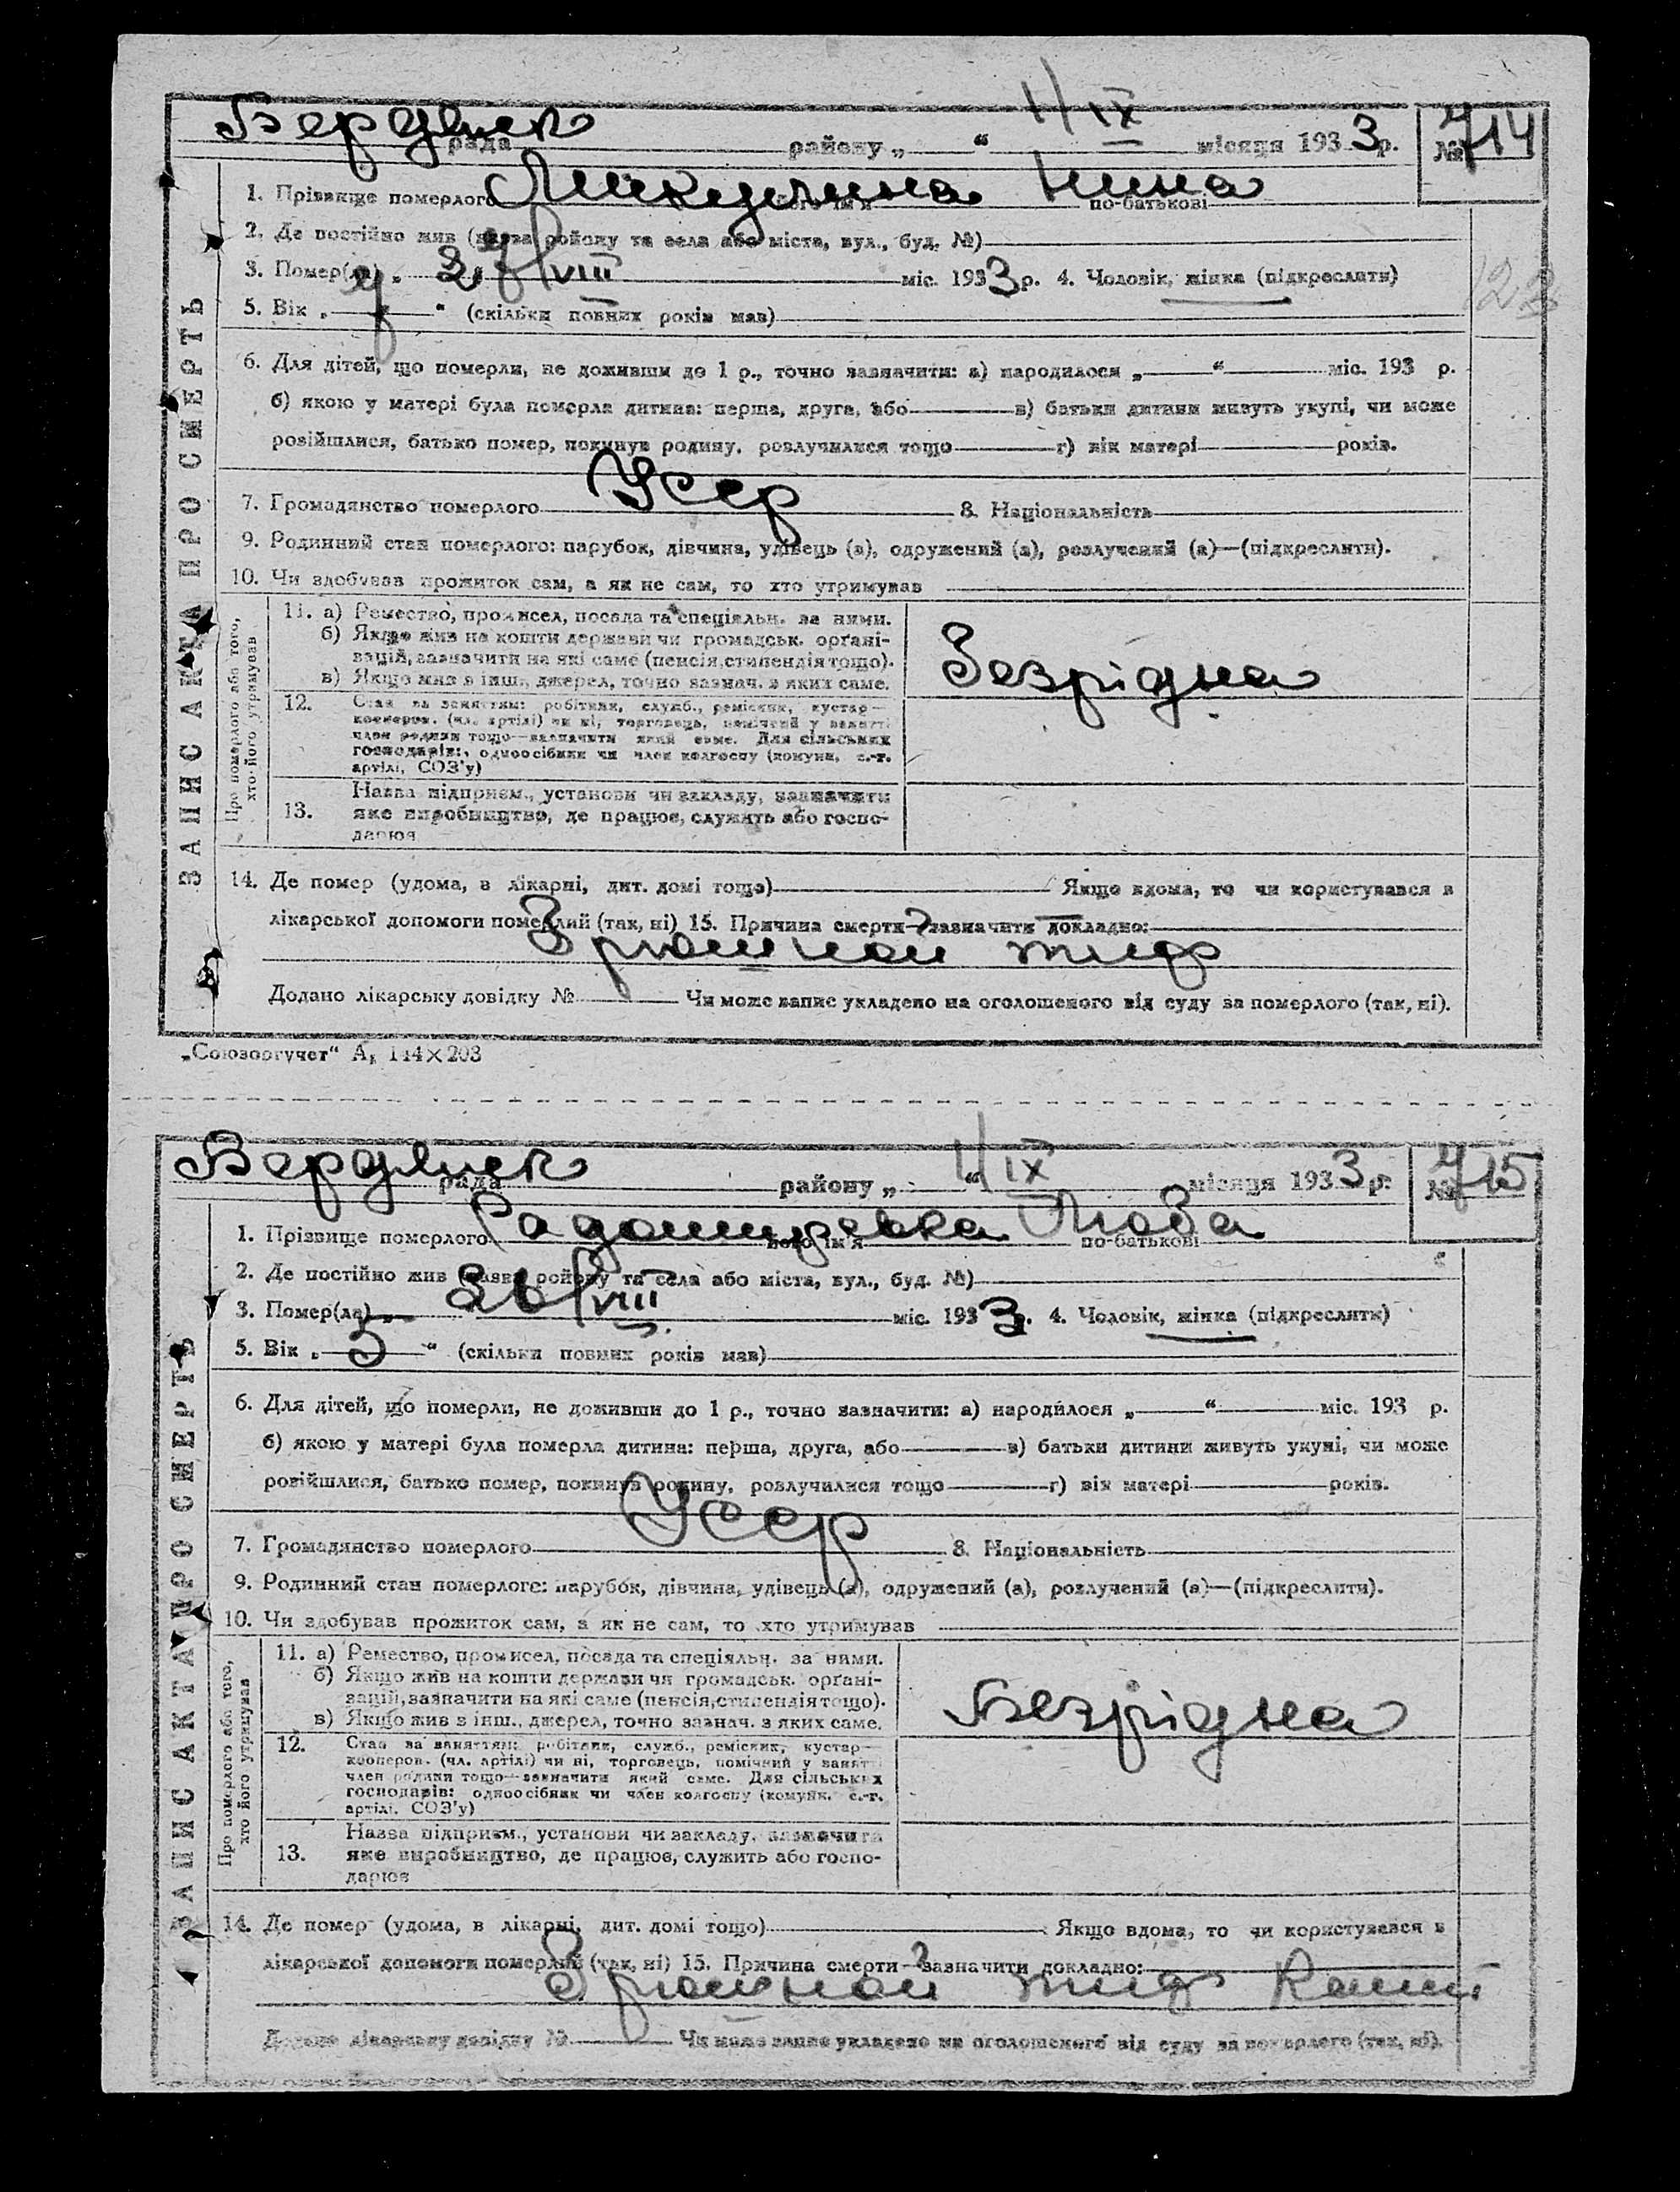 Бердянск
рада району „ “ 1/IX місяця 1933 р. № 714
1. Прізвище померлого його ім'я Нина по-батькові
2. Де постійно жив (назва району та села або міста, вул., буд. №)
3. Помер(ла) „ 27/VIII міс. 1933 р. 4. Чоловік, жінка (підкреслити)
5. Вік „ “ (скільки повних років мав)
6. Для дітей, що померли, не доживши до 1 р., точно зазначити: а) народилося „ “ міс. 193 р.
б) якою у матері була померла дитина: перша, друга, або в) батьки дитини живуть укупі, чи може
розійшлися, батько помер, покинув родину, розлучилися тощо г) вік матері років.
Усср
7. Громадянство померлого 8. Національність
9. Родинний стан померлого: парубок, дівчина, удівець (а), одружений (а), розлучений (а)—(підкреслити).
10. Чи здобував прожиток сам, а як не сам, то хто утримував
ЗАПИС АКТА ПРО СМЕРТЬ
Про померлого або того, хто його утримував
11. а) Ремество, промисел, посада та спеціяльн. за ними.
б) Якщо жив на кошти держави чи громадськ. органі-
зацій, зазначити на які саме (пенсія, стипендія тощо).
в) Якщо жив з інш. джерел, точно зазнач. з яких саме.
Безрідна
12. Стан за заняттям: робітник, служб., ремісник, кустар—
кооперов. (чл. артілі) чи ні, торговець, помічний у занятті
член родини тощо—зазначити який саме. Для сільських
господарів: одноосібник чи член колгоспу (комуни, с.-г.
артілі, СОЗ'у)
13. Назва підприєм., установи чи закладу, зазначити
яке виробництво, де працює, служить або госпо-
дарює
14. Де помер (удома, в лікарні, дит. домі тощо) Якщо вдома, то чи користувався з
лікарської допомоги померлий (так, ні) 15. Причина смерти—зазначити докладно:
тиф
Додано лікарську довідку № Чи може запис укладено на оголошеного від суду за померлого (так, ні).
„Союзоргучет“ А₅ 144×203
Бердянск
рада району „ “ 1/IX місяця 1933 р. № 715
1. Прізвище померлого його ім'я Люба по-батькові
2. Де постійно жив (назва району та села або міста, вул., буд. №)
3. Помер(ла) „ 26/VIII міс. 1933 р. 4. Чоловік, жінка (підкреслити)
5. Вік „ 5 “ (скільки повних років мав)
6. Для дітей, що померли, не доживши до 1 р., точно зазначити: а) народилося „ “ міс. 193 р.
б) якою у матері була померла дитина: перша, друга, або в) батьки дитини живуть укупі, чи може
розійшлися, батько помер, покинув родину, розлучилися тощо г) вік матері років.
Усср
7. Громадянство померлого 8. Національність
9. Родинний стан померлого: парубок, дівчина, удівець (а), одружений (а), розлучений (а)—(підкреслити).
10. Чи здобував прожиток сам, а як не сам, то хто утримував
ЗАПИС АКТА ПРО СМЕРТЬ
Про померлого або того, хто його утримував
11. а) Ремество, промисел, посада та спеціяльн. за ними.
б) Якщо жив на кошти держави чи громадськ. органі-
зацій, зазначити на які саме (пенсія, стипендія тощо).
в) Якщо жив з інш. джерел, точно зазнач. з яких саме.
Безрідна
12. Стан за заняттям: робітник, служб., ремісник, кустар—
кооперов. (чл. артілі) чи ні, торговець, помічний у занятті
член родини тощо—зазначити який саме. Для сільських
господарів: одноосібник чи член колгоспу (комуни, с.-г.
артілі, СОЗ'у)
13. Назва підприєм., установи чи закладу, зазначити
яке виробництво, де працює, служить або госпо-
дарює
14. Де помер (удома, в лікарні, дит. домі тощо) Якщо вдома, то чи користувався з
лікарської допомоги померлий (так, ні) 15. Причина смерти—зазначити докладно:
тиф
Додано лікарську довідку № Чи може запис укладено на оголошеного від суду за померлого (так, ні).